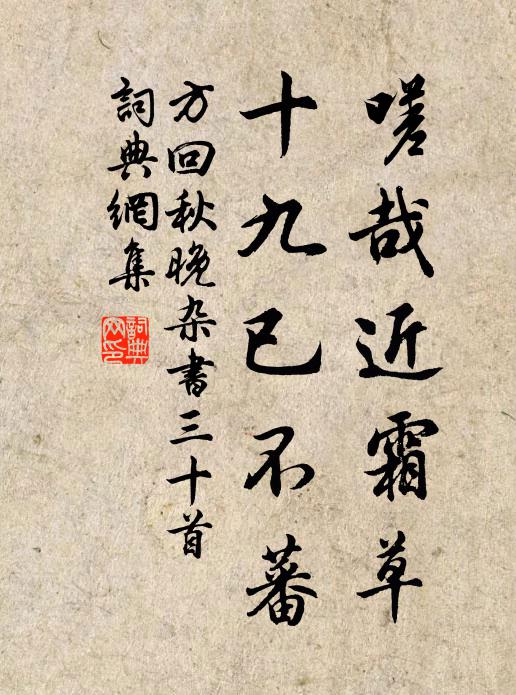 嗟哉近霜草
十九已不蕃
方回秋晚杂書三十首
詞典網集
詞典網印